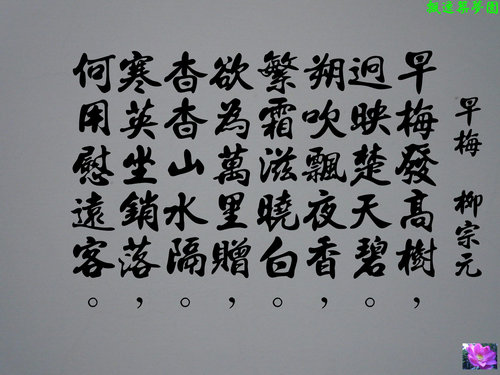 早梅　柳宗元
早梅發高樹，
迥映楚天碧。
朔吹飄夜香，
繁霜滋曉白。
欲為萬里贈，
杳杳山水隔。
寒英坐銷落，
何用慰遠客。